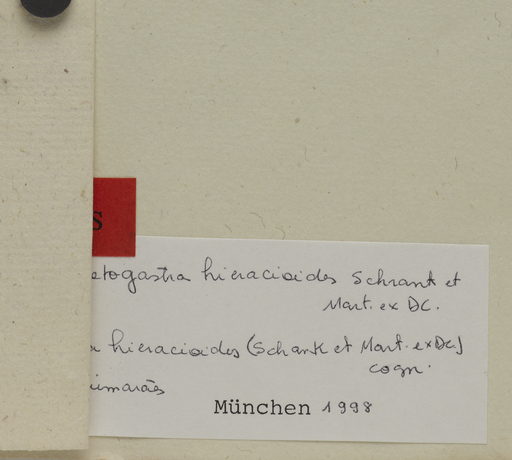 S
etogastra hieracioides Schrank et
Mart. ex DC.
a hieracioides (Schank et Mart. ex DC.)
Cogn.
uimarães
München 1998